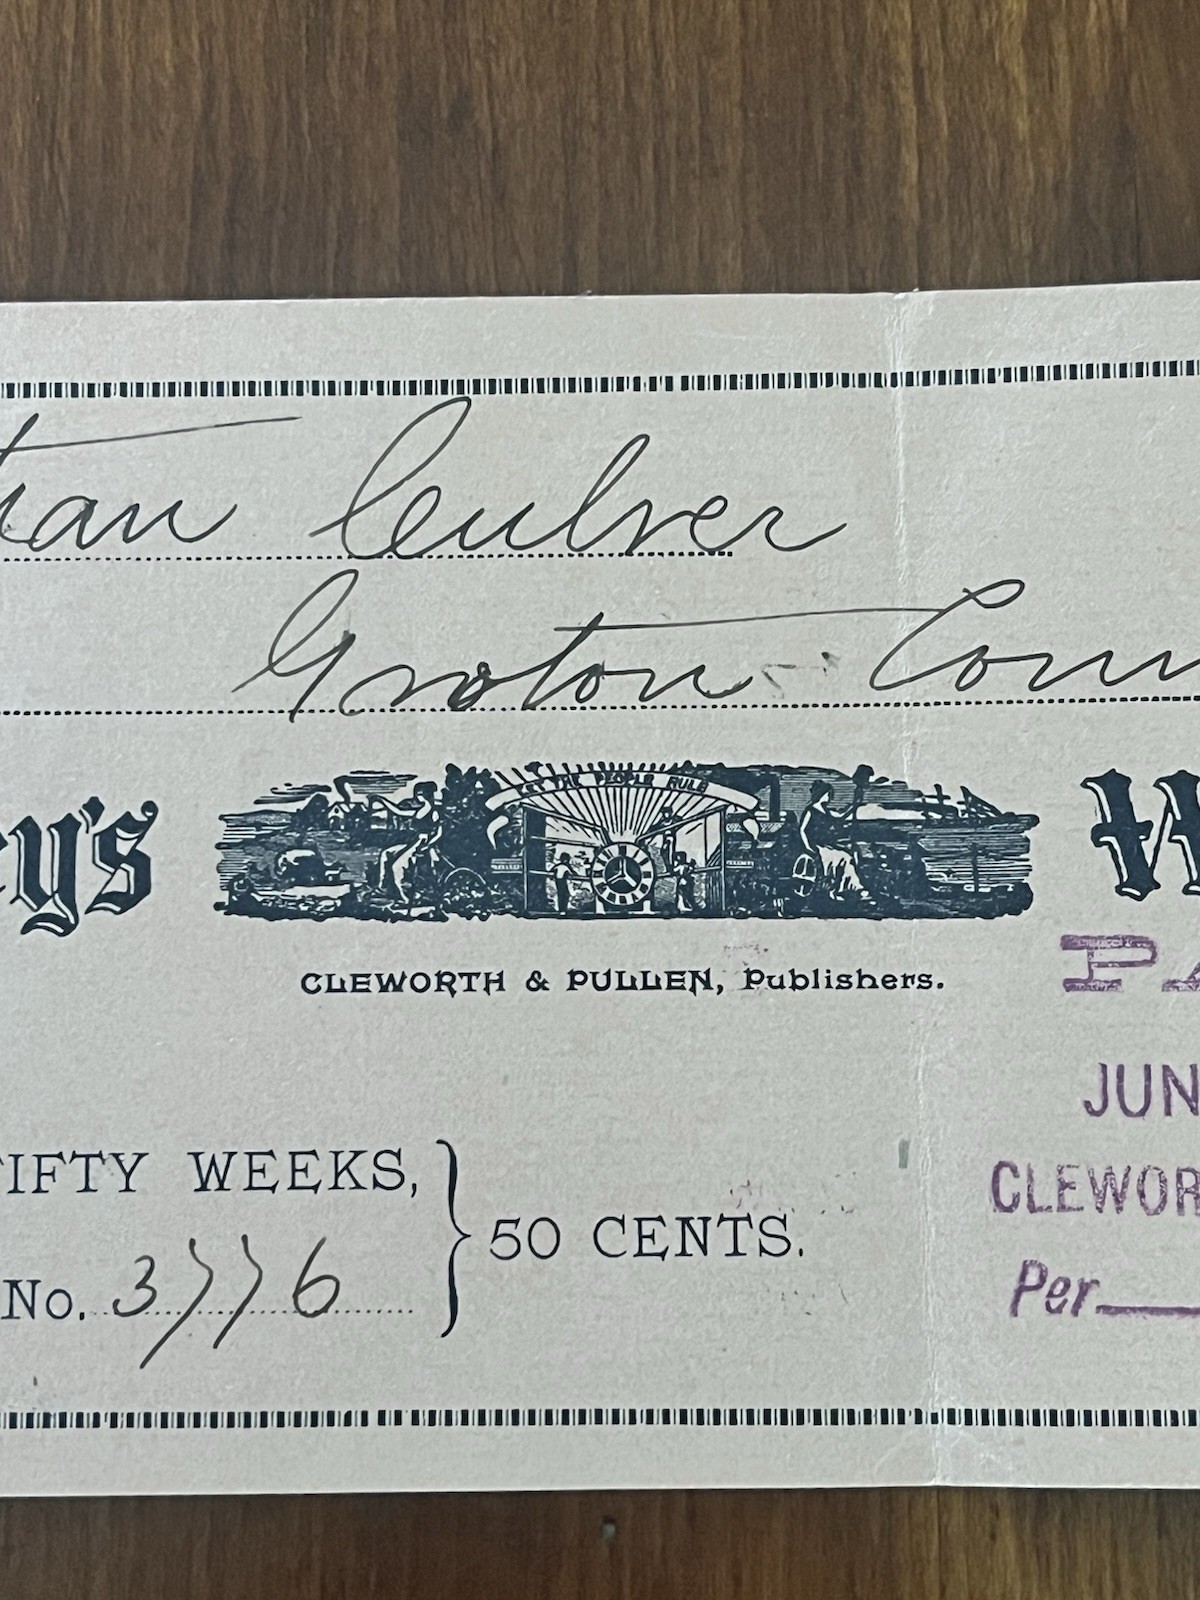 tian Culver
Groton - Conn
LET THE PEOPLE RULE
ey's W
CLEWORTH & PULLEN, Publishers.
PA
JUN
FIFTY WEEKS,
50 CENTS.
No. 3776
CLEWOR
Per